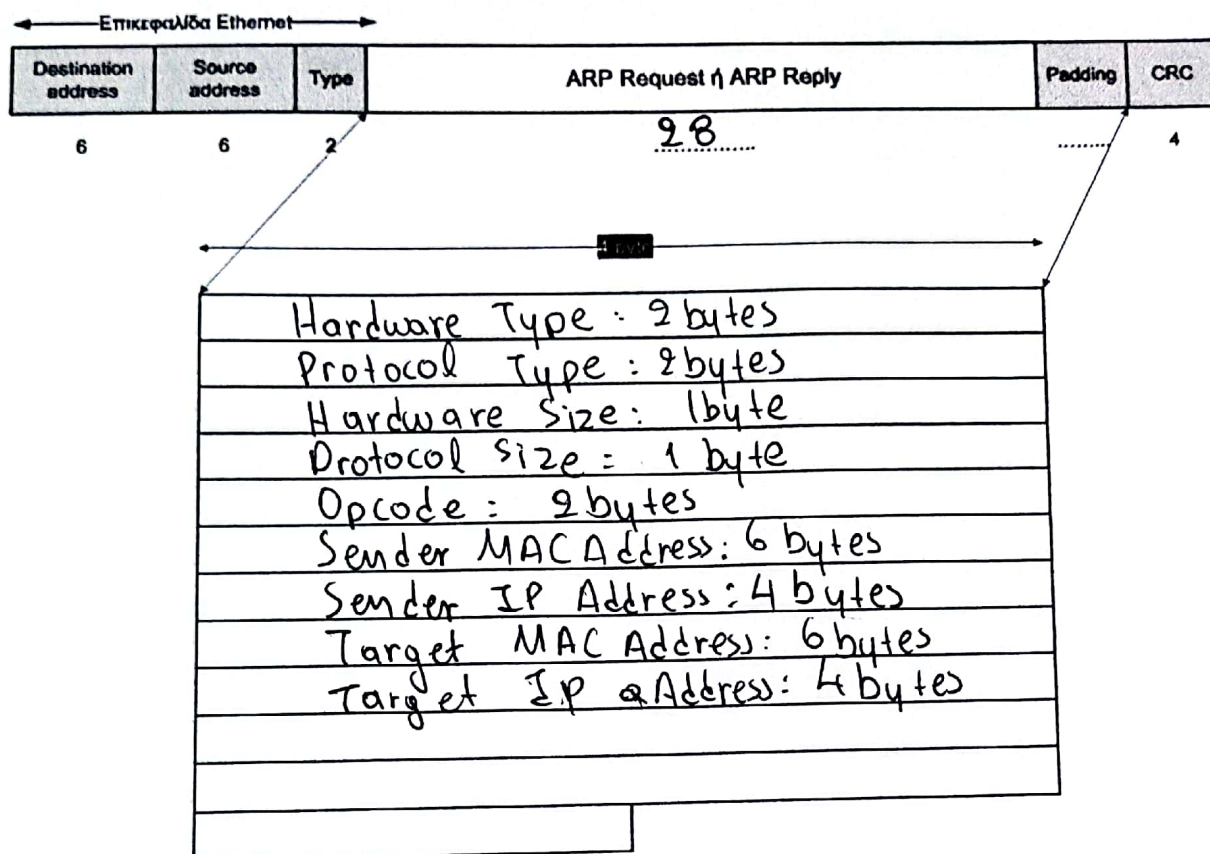 Επικεφαλίδα Ethernet
Destination address Source address Type ARP Request ή ARP Reply Padding CRC
6 6 2 28 ......... 4
4 byte
Hardware Type: 2 bytes
Protocol Type: 2 bytes
Hardware Size: 1 byte
Protocol size: 1 byte
Opcode: 2 bytes
Sender MAC Address: 6 bytes
Sender IP Address: 4 bytes
Target MAC Address: 6 bytes
Target IP Address: 4 bytes